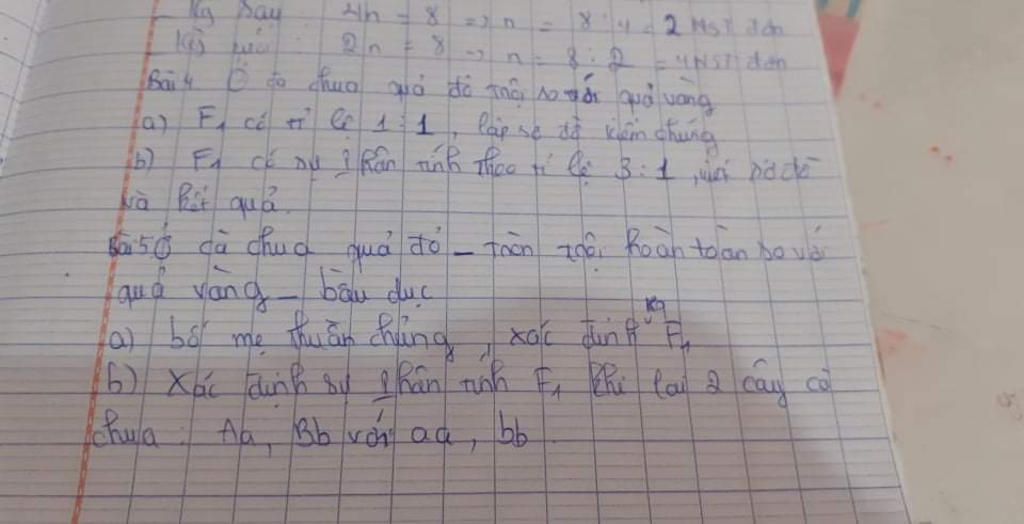 Kỳ sau 4n = 8 => n = 8 : 4 = 2 NST đơn
2n = 8 => n = 8 : 2 = 4 NST đơn
Bài 4 Ở cà chua quả đỏ trội so với quả vàng
a) F1 có tỉ lệ 1 : 1, lập sơ đồ kiểm chứng
b) F1 có sự phân tính theo tỉ lệ 3 : 1, viết sơ đồ
và kết quả.
Bài 5 Ở cà chua quả đỏ - tròn trội hoàn toàn so với
quả vàng - bầu dục
a) bố mẹ thuần chủng, xác định KQ F1
b) Xác định sự phân tính F1 khi lai 2 cây cà
chua : Aa, Bb với aa, bb